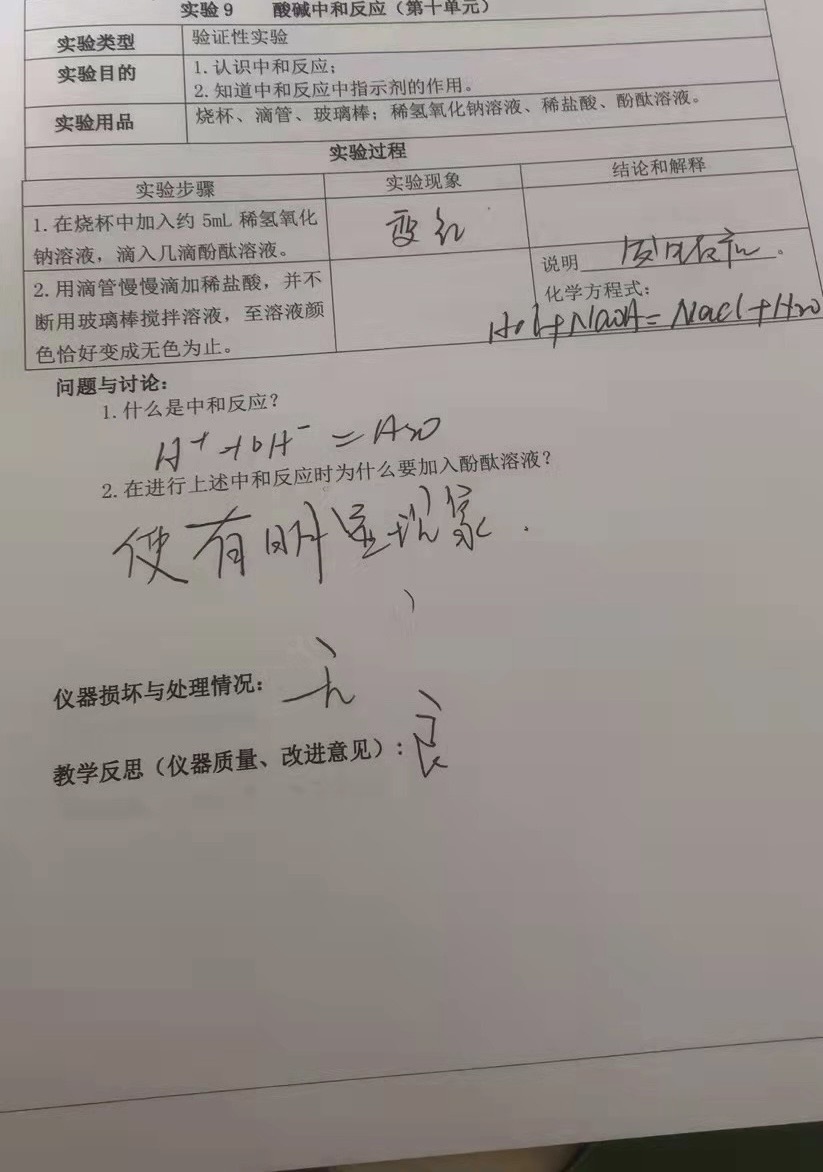 实验9 酸碱中和反应（第十单元）
实验类型 验证性实验
实验目的 1.认识中和反应；
2.知道中和反应中指示剂的作用。
实验用品 烧杯、滴管、玻璃棒；稀氢氧化钠溶液、稀盐酸、酚酞溶液。
实验过程
实验步骤 实验现象 结论和解释
1.在烧杯中加入约 5mL 稀氢氧化
钠溶液，滴入几滴酚酞溶液。
变红
2.用滴管慢慢滴加稀盐酸，并不
断用玻璃棒搅拌溶液，至溶液颜
色恰好变成无色为止。
说明 发生反应。
化学方程式：
HCl+NaOH=NaCl+H2O
问题与讨论：
1.什么是中和反应？
H+ +OH- =H2O
2.在进行上述中和反应时为什么要加入酚酞溶液？
使有明显现象.
仪器损坏与处理情况：
教学反思（仪器质量、改进意见）：良